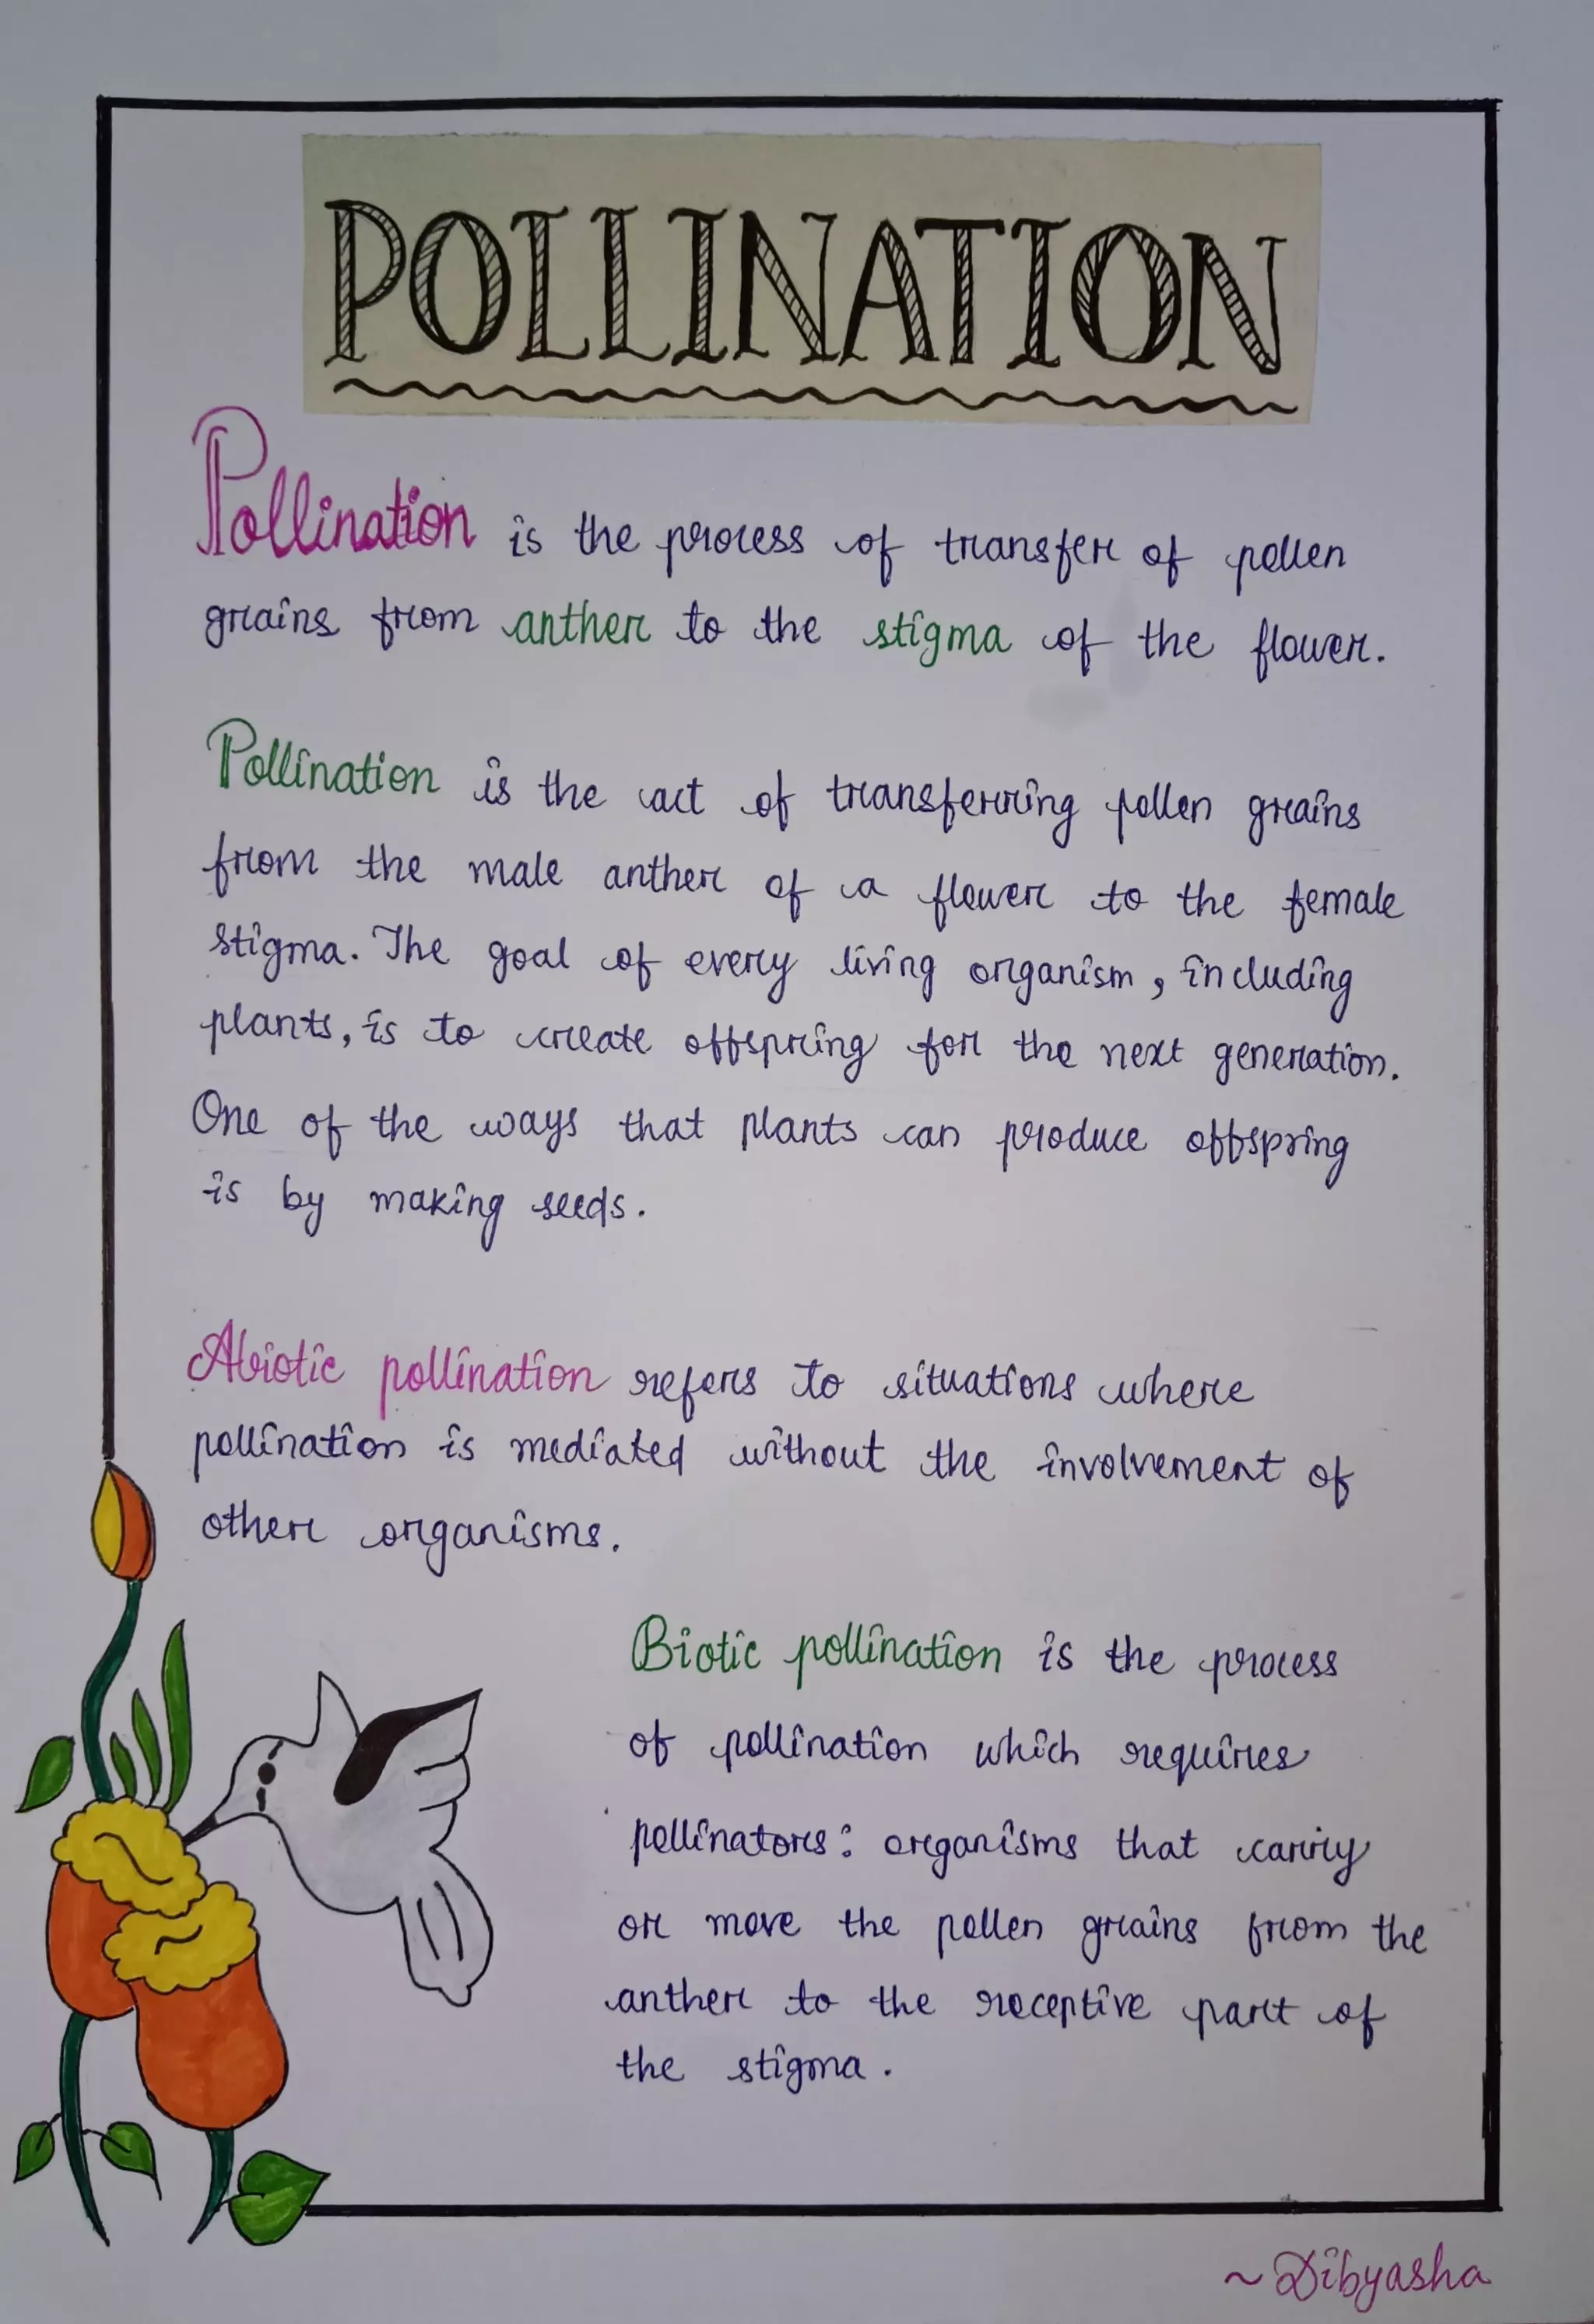 POLLINATION
Pollination is the process of transfer of pollen
grains from anther to the stigma of the flower.
Pollination is the act of transferring pollen grains
from the male anther of a flower to the female
stigma. The goal of every living organism, including
plants, is to create offspring for the next generation.
One of the ways that plants can produce offspring
is by making seeds.
Abiotic pollination refers to situations where
pollination is mediated without the involvement of
other organisms.
Biotic pollination is the process
of pollination which requires
pollinators: organisms that carry
or move the pollen grains from the
anther to the receptive part of
the stigma.
~Dibyasha